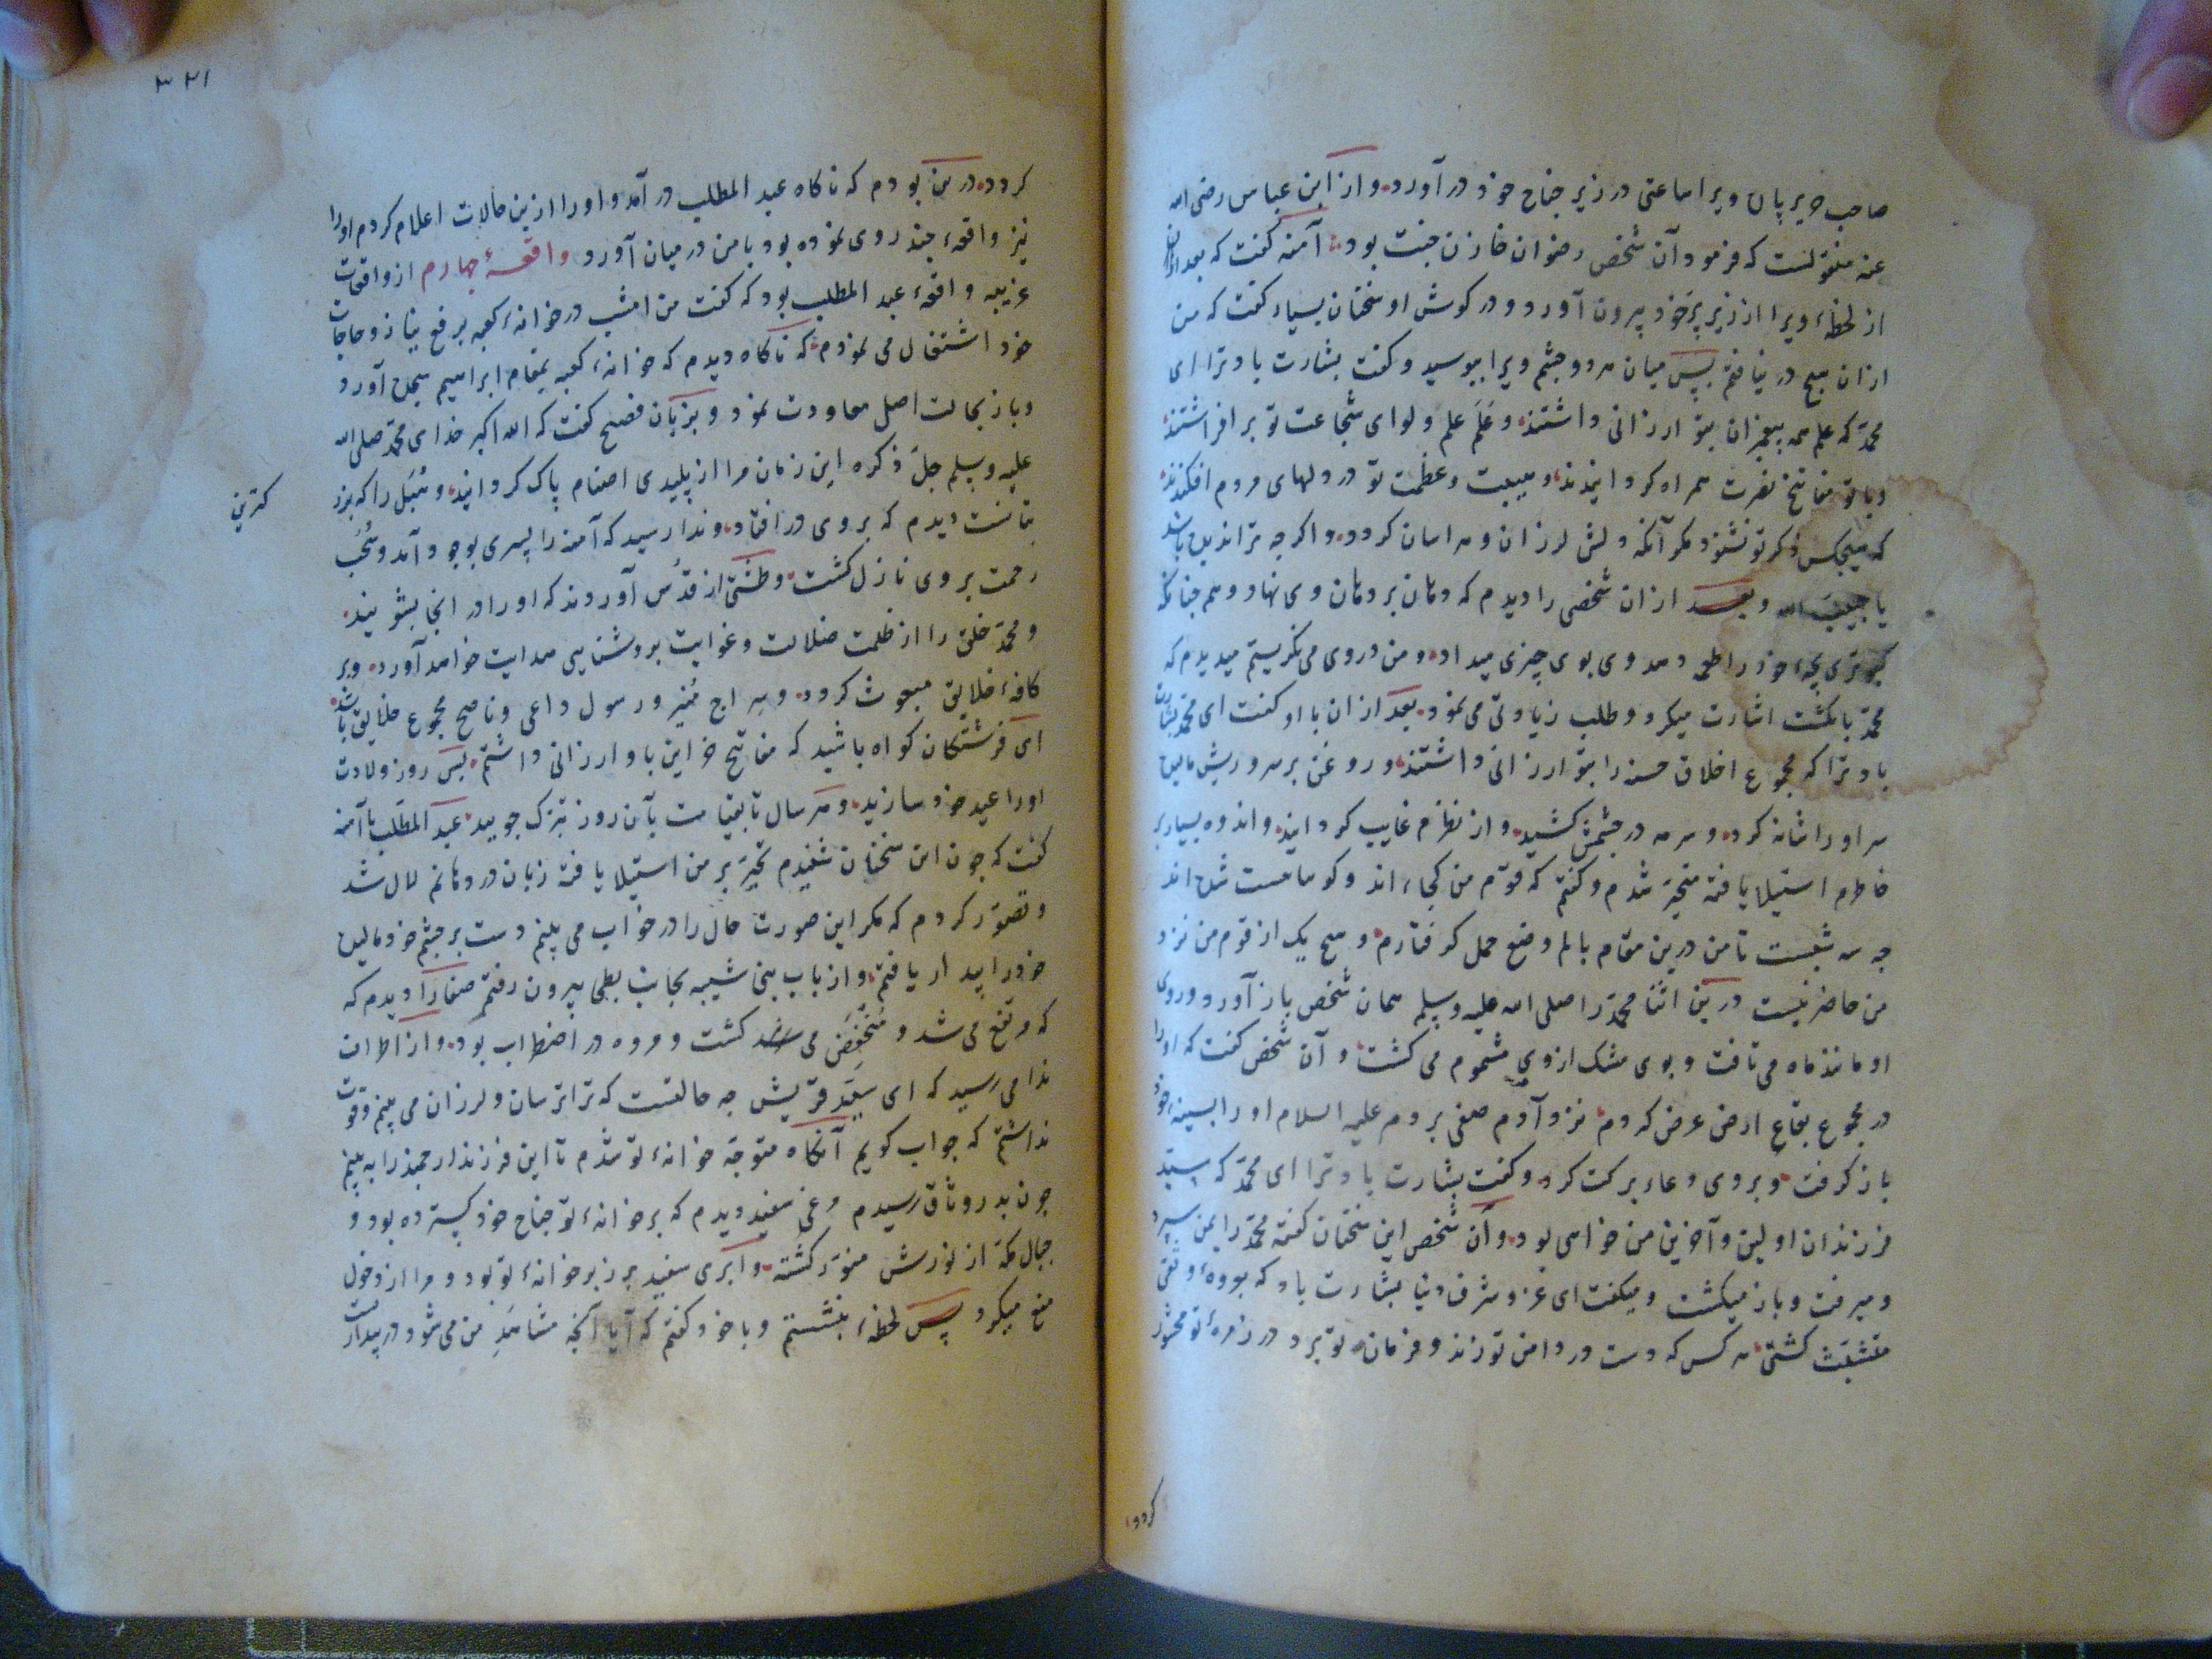 صاحب حریر پان ویرا ساعتی در زیر جناح خود در آورد و از ابن عباس رضی الله
عنه منقولست که فرمود آن شخص رضوان خازن جنت بود آمنه کفت که بعد از
از لحظهٔ ویرا از زیر پر خود بیرون آورد و در کوش او سخنان بسیار کفت که من
از ان هیچ در نیافتم پس میان هر دو چشم ویرا ببوسید و کفت بشارت باد ترا ای
محمد که علم همه پیغمبران بتو ارزانی داشتند و علم علم و لوای شجاعت تو بر افراشتند
و با تو مفاتیح نصرت همراه کردانیدند و هیبت و عظمت تو در دلهای مردم افکندند
که هیچکس ذکر تو نشنود مکر آنکه دلش لرزان و هراسان کردد و اکرچه ترا ندیده باشد
یا حبیب الله و بعد از ان شخصی را دیدم که دهان بر دهان وی نهاد و همچنانکه
کبوتری بچهٔ خود را طعمه دهد وی بوی چیزی میداد و من در وی می نکریستم میدیدم که
محمد بانکشت اشارت میکرد و طلب زیادتی می نمود بعد از ان با او کفت ای محمد بشارت
باد ترا که مجموع اخلاق حسنه را بتو ارزانی داشتند و روغن بر سر و ریش مالیده
سر او را شانه کرده و سرمه در چشمش کشید و از نظرم غایب کردانید و اندوه بسیار بر
خاطرم استیلا یافته متحیر شدم و کفتم که قوم من کجااند و کو ما مست شده اند
چه سه شبست تا من درین مقام بالم وضع حمل کرفتارم و هیچ یک از قوم من نزد
من حاضر نیست درین اثنا محمد را صلی الله علیه وسلم همان شخص باز آورد و روی
او مانند ماه می تافت و بوی مشک از وی مشموم می کشت و آن شخص کفت که او را
در مجموع بقاع ارض عرض کردم نزد آدم صفی بردم علیه السلام او را بسینهٔ خود
باز کرفت و بروی دعاء برکت کرد و کفت بشارت باد ترا ای محمد که سید
فرزندان اولین و آخرین من خواهی بود و آن شخص این سخنان کفته محمد را بمن سپرد
و میرفت و باز میکشت و میکفت ای عز و شرف دنیا بشارت باد که بعروهٔ وثقی
متشبث کشتی هر کس که دست در دامن تو زند و فرمان تو برد در زمرهٔ تو محشور
کردد
۳۲۱
کردد درین بودم که ناکاه عبد المطلب در آمد و او را ازین حالات اعلام کردم او را
نیز واقعهٔ چند روی نموده بود با من در میان آورد واقعهٔ چهارم از واقعات
غریبه واقعهٔ عبد المطلب بود که کفت من امشب در خانهٔ کعبه برفع نیاز و حاجات
خود اشتغال می نمودم که ناکاه دیدم که خانهٔ کعبه بمقام ابراهیم سجده آورد
و باز بحالت اصل معاودت نمود و بزبان فصیح کفت که الله اکبر خدای محمد صلی الله
علیه وسلم جل ذکره این زمان مرا از پلیدی اصنام پاک کردانید و هبل را که بزر
کترین
بتانست دیدم که بروی در افتاد و ندا رسید که آمنه را پسری بوجود آمد و سحب
رحمت بروی نازل کشت و طشتی از قدس آوردند که او را در انجا بشویند
و محمد خلق را از ظلمت ضلالت و غوایت بروشنایی هدایت خواهد آورد و بر
کافهٔ خلایق مبعوث کردد و سراج منیر و رسول داعی و ناصح مجموع خلایق باشد
ای فرشتکان کواه باشید که مفاتیح خزاین با و ارزانی داشتم پس روز ولادت
او را عید خود سازید و هر سال تا بقیامت بآن روز تبرک جویید عبد المطلب با آمنه
کفت که چون این سخنان شنیدم تحیر بر من استیلا یافته زبان در دهانم لال شد
و تصور کردم که مکر این صورت حال را در خواب می بینم دست بر چشم خود مالیده
خود را بیدار یافتم و از باب بنی شیبه بجانب بطحی بیرون رفتم صفا را دیدم که
که مرتفع می شد و منخفض می کشت و مروه در اضطراب بود و از اطراف
ندا می رسید که ای سید قریش چه حالتست که ترا ترسان و لرزان می بینم و قوت
نداشتم که جواب کویم آنکاه متوجه خانهٔ تو شدم تا این فرزند ارجمند را به بینم
چون بدر وثاق رسیدم مرغی سفید دیدم که بر خانهٔ تو جناح خود کسترده بود و
جبال مکه از نورش منور کشته و ابری سفید بر زبر خانهٔ تو بود و مرا از دخول
منع میکرد پس لحظهٔ بنشستم و با خود کفتم که آیا آنچه مشاهد من می شود در بیداریست